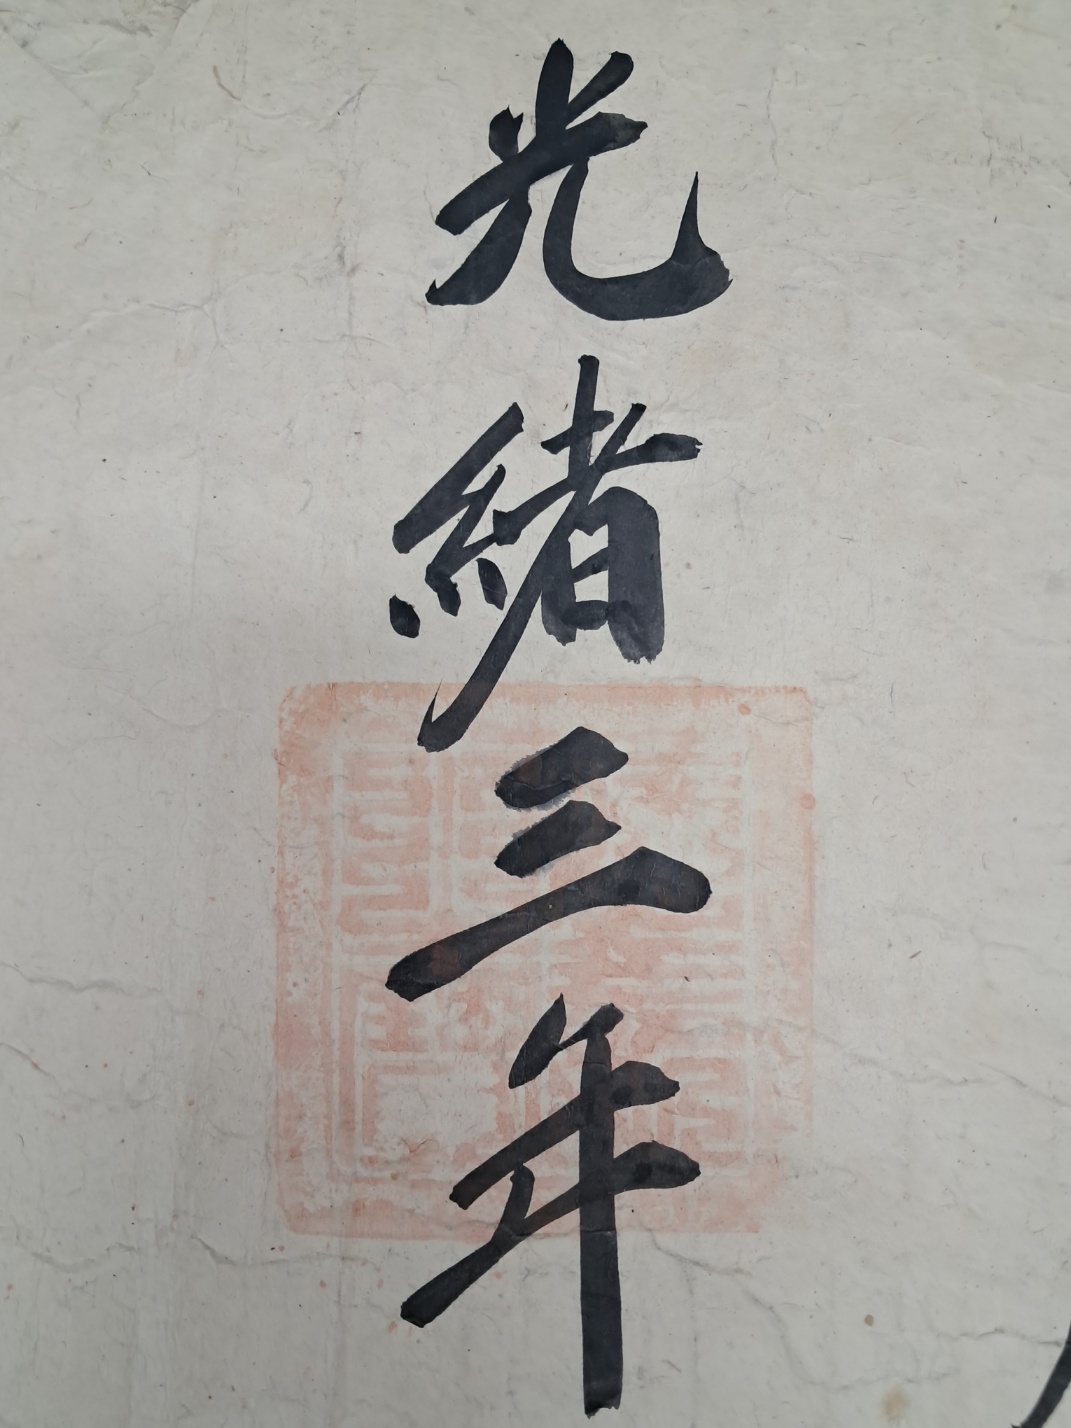 光緒三年